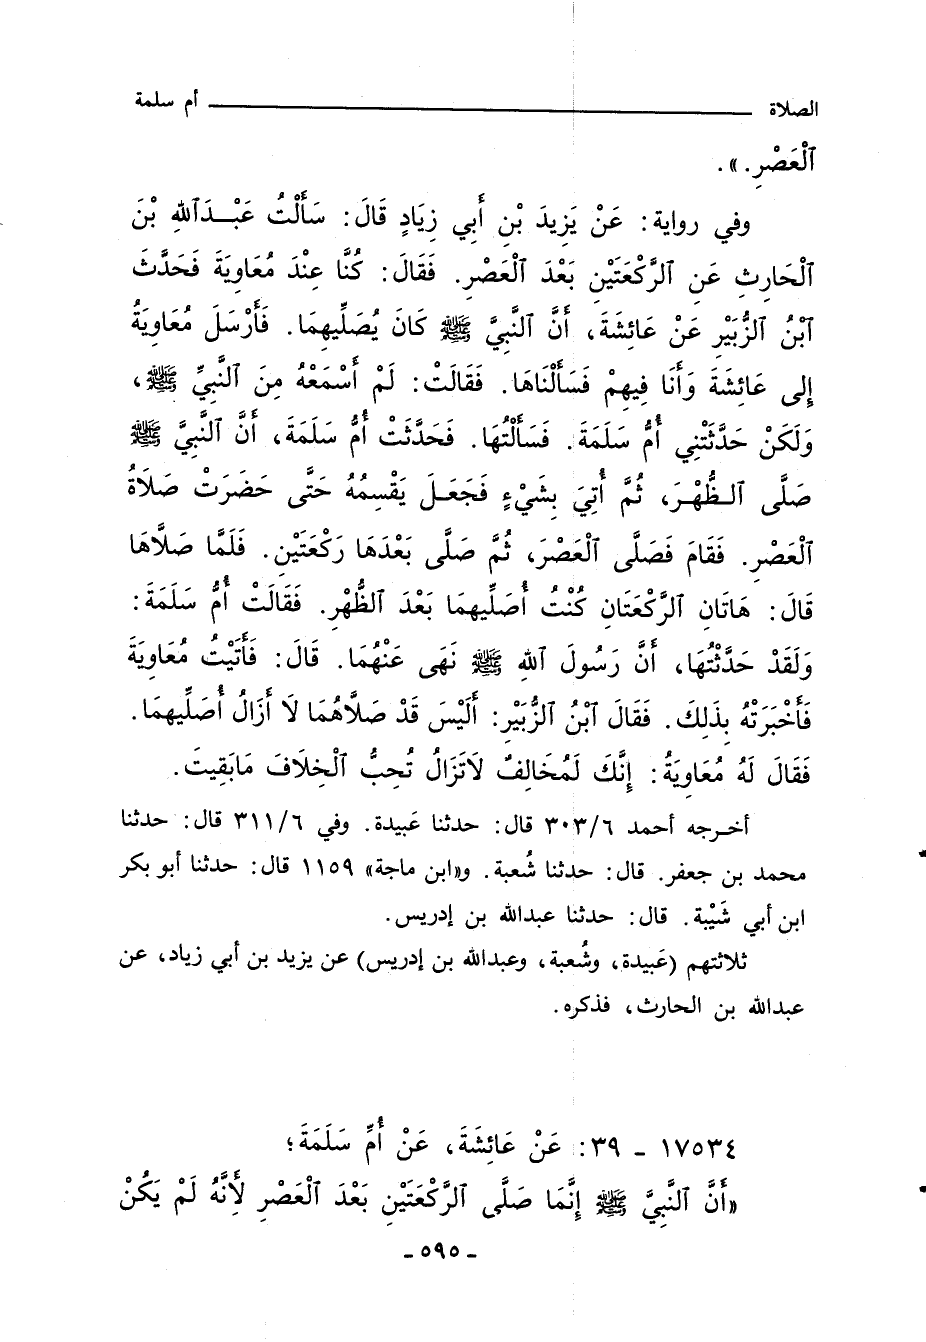 الصلاة ــــــــــــــــــــــــــــ أم سلمة
ٱلْعَصْرِ.».
وفي رواية: عَنْ يَزِيدَ بْنِ أَبي زِيَادٍ قَالَ: سَأَلْتُ عَبْدَٱللهِ بْنَ
ٱلْحَارِثِ عَنِ ٱلرَّكْعَتَيْنِ بَعْدَ ٱلْعَصْرِ. فَقَالَ: كُنَّا عِنْدَ مُعَاوِيَةَ فَحَدَّثَ
ٱبْنُ ٱلزُّبَيْرِ عَنْ عَائِشَةَ، أَنَّ ٱلنَّبِيَّ ﷺ كَانَ يُصَلِّيهِمَا. فَأَرْسَلَ مُعَاوِيَةُ
إِلى عَائِشَةَ وَأَنَا فِيهِمْ فَسَأَلْنَاهَا. فَقَالَتْ: لَمْ أَسْمَعْهُ مِنَ ٱلنَّبِيِّ ﷺ،
وَلَكَنْ حَدَّثَتْنِي أُمُّ سَلَمَةَ. فَسَأَلْتُهَا. فَحَدَّثَتْ أُمُّ سَلَمَةَ، أَنَّ ٱلنَّبِيَّ ﷺ
صَلَّى ٱلظُّهْرَ، ثُمَّ أُتِيَ بِشَيْءٍ فَجَعَلَ يَقْسِمُهُ حَتَّى حَضَرَتْ صَلَاةُ
ٱلْعَصْرِ. فَقَامَ فَصَلَّى ٱلْعَصْرَ، ثُمَّ صَلَّى بَعْدَهَا رَكْعَتَيْنِ. فَلَمَّا صَلَّاهَا
قَالَ: هَاتَانِ ٱلرَّكْعَتَانِ كُنْتُ أُصَلِّيهِمَا بَعْدَ ٱلظُّهْرِ. فَقَالَتْ أُمُّ سَلَمَةَ:
وَلَقَدْ حَدَّثْتُهَا، أَنَّ رَسُولَ ٱللهِ ﷺ نَهَى عَنْهُمَا. قَالَ: فَأَتَيْتُ مُعَاوِيَةَ
فَأَخْبَرَتْهُ بِذَلِكَ. فَقَالَ ٱبْنُ ٱلزُّبَيْرِ: أَلَيْسَ قَدْ صَلَّاهُمَا لَا أَزَالُ أُصَلِّيهِمَا.
فَقَالَ لَهُ مُعَاوِيَةُ: إِنَّكَ لَمُخَالِفٌ لَاتَزَالُ تُحِبُّ ٱلْخِلَافَ مَابَقِيتَ.
أخرجه أحمد ٣٠٣/٦ قال: حدثنا عَبيدة. وفي ٣١١/٦ قال: حدثنا
محمد بن جعفر. قال: حدثنا شُعبة. و«ابن ماجة» ١١٥٩ قال: حدثنا أبو بكر
ابن أبي شَيْبة. قال: حدثنا عبدالله بن إدريس.
ثلاثتهم (عَبيدة، وشُعبة، وعبدالله بن إدريس) عن يزيد بن أبي زياد، عن
عبدالله بن الحارث، فذكره.
١٧٥٣٤ - ٣٩: عَنْ عَائِشَةَ، عَنْ أُمِّ سَلَمَةَ؛
«أَنَّ ٱلنَّبِيَّ ﷺ إِنَّمَا صَلَّى ٱلرَّكْعَتَيْنِ بَعْدَ ٱلْعَصْرِ لأَنَّهُ لَمْ يَكُنْ
- ٥٩٥ -